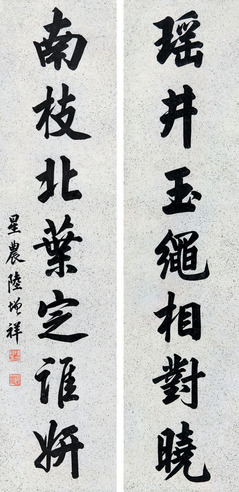 瑶井玉繩相對曉
南枝北葉定誰妍
星農陸增祥